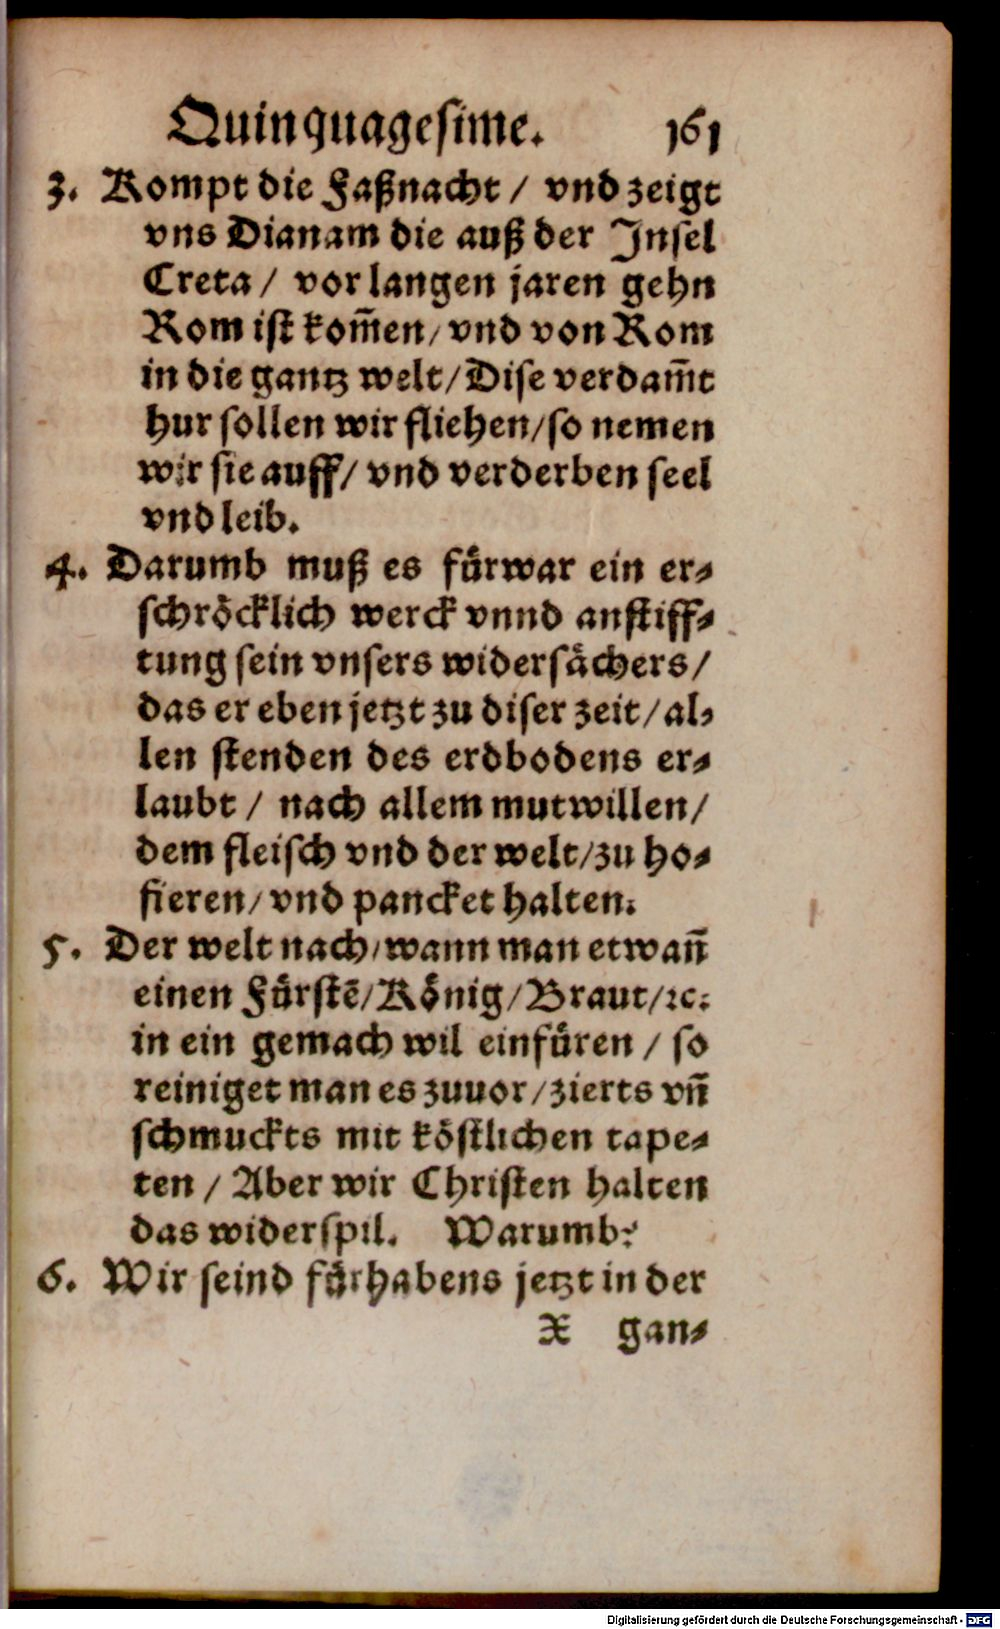 Quinquagesime. 161
3. Kompt die Faßnacht / vnd zeigt
vns Dianam die auß der Insel
Creta / vor langen jaren gehn
Rom ist kom̃en / vnd von Rom
in die gantz welt / Dise verdam̃t
hur sollen wir fliehen / so nemen
wir sie auff / vnd verderben seel
vnd leib.
4. Darumb muß es fürwar ein er-
schröcklich werck vnnd anstiff-
tung sein vnsers widersächers /
das er eben jetzt zu diser zeit / al-
len stenden des erdbodens er-
laubt / nach allem mutwillen /
dem fleisch vnd der welt / zu ho-
fieren / vnd pancket halten.
5. Der welt nach / wann man etwañ
einen Fürstē / König / Braut / ꝛc.
in ein gemach wil einfüren / so
reiniget man es zuuor / zierts vñ
schmuckts mit köstlichen tape-
ten / Aber wir Christen halten
das widerspil. Warumb?
6. Wir seind fürhabens jetzt in der
X gan-
Digitalisierung gefördert durch die Deutsche Forschungsgemeinschaft - DFG